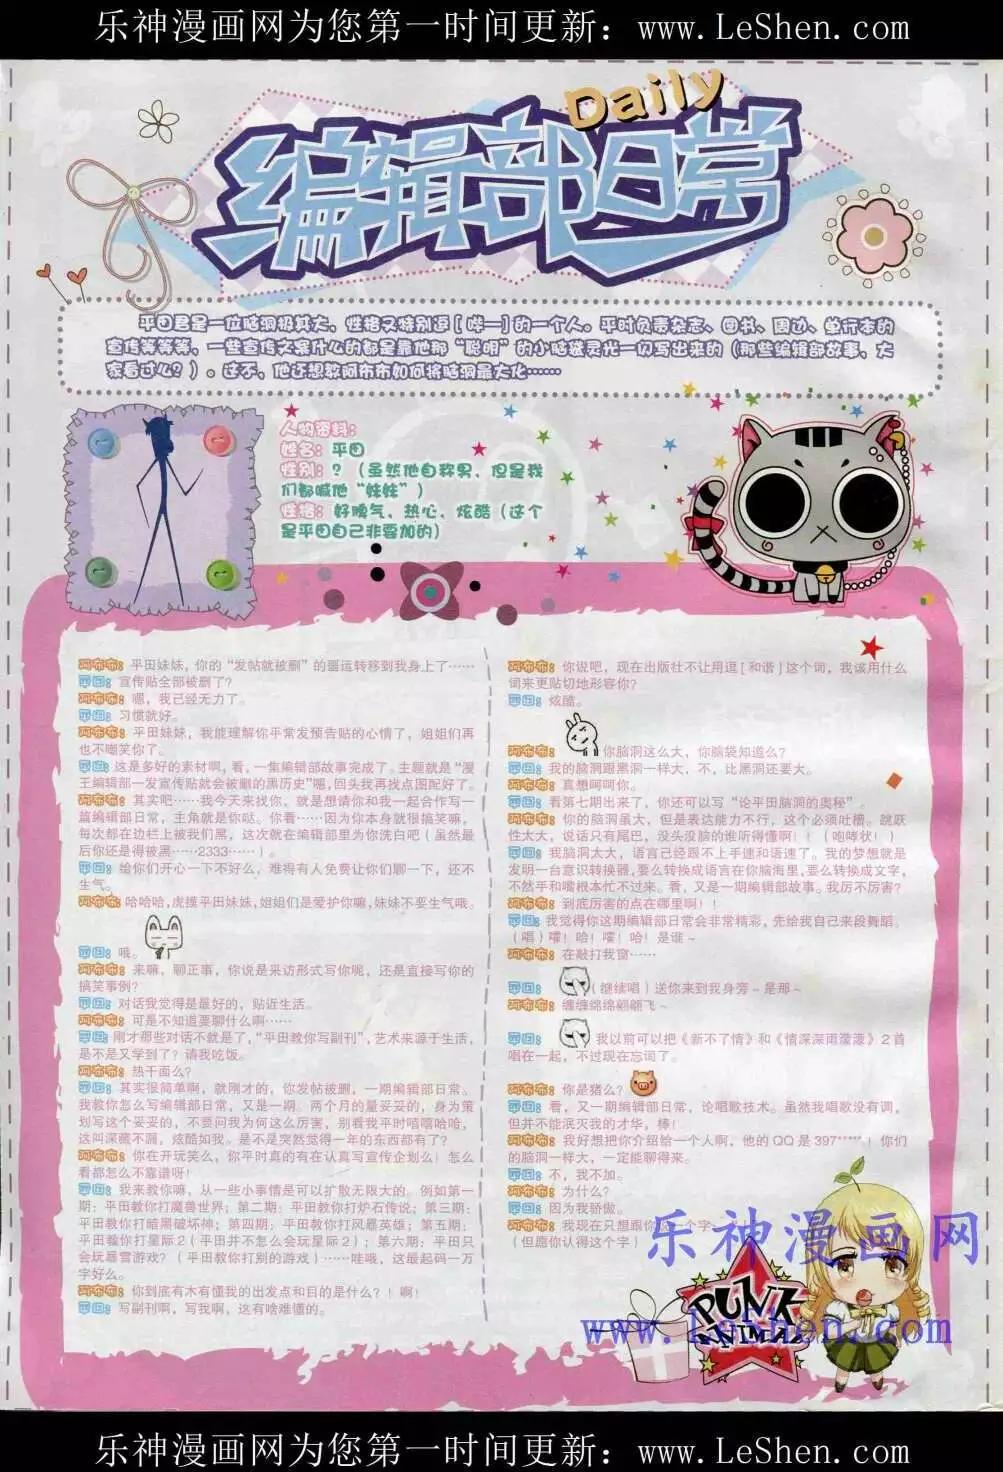 乐神漫画网为您第一时间更新：www.LeShen.com
Daily
编辑部日常
平田君是一位脑洞极其大，性格又特别逗[哔—]的一个人。平时负责杂志、图书、周边、单行本的
宣传等等等，一些宣传文案什么的都是靠他那“聪明”的小脑袋灵光一闪写出来的（那些编辑部故事，大
家看过么？）。这不，他还想教阿布布如何将脑洞最大化……
人物资料：
姓名：平田
性别：？（虽然他自称男，但是我
们都喊他“妹妹”）
性格：好脾气、热心、炫酷（这个
是平田自己非要加的）
阿布布：平田妹妹，你的“发帖就被删”的噩运转移到我身上了……
平田：宣传贴全部被删了？
阿布布：嗯，我已经无力了。
平田：习惯就好。
阿布布：平田妹妹，我能理解你平常发预告贴的心情了，姐姐们再
也不嘲笑你了。
平田：这是多好的素材啊，看，一集编辑部故事完成了。主题就是“漫
王编辑部一发宣传贴就会被删的黑历史”嗯，回头我再找点图配好了。
阿布布：其实吧……我今天来找你，就是想请你和我一起合作写一
篇编辑部日常，主角就是你哒。你看……因为你本身就很搞笑嘛，
每次都在边栏上被我们黑，这次就在编辑部里为你洗白吧（虽然最
后你还是得被黑……2333……）。
平田：给你们开心一下不好么，难得有人免费让你们聊一下，还不
生气。
阿布布：哈哈哈，虎摸平田妹妹，姐姐们是爱护你嘛，妹妹不要生气哦。
平田：哦。
阿布布：来嘛，聊正事，你说是采访形式写你呢，还是直接写你的
搞笑事例？
平田：对话我觉得是最好的，贴近生活。
阿布布：可是不知道要聊什么啊……
平田：刚才那些对话不就是了，“平田教你写副刊”，艺术来源于生活，
是不是又学到了？请我吃饭。
阿布布：热干面么？
平田：其实很简单啊，就刚才的，你发帖被删，一期编辑部日常。
我教你怎么写编辑部日常，又是一期。两个月的量妥妥的，身为策
划写这个妥妥的，不要问我为何这么厉害，别看我平时嘻嘻哈哈，
这叫深藏不漏，炫酷如我。是不是突然觉得一年的东西都有了？
阿布布：你在开玩笑么，你平时真的有在认真写宣传企划么！怎么
看都怎么不靠谱呀！
平田：我来教你嘛，从一些小事情是可以扩散无限大的。例如第一
期：平田教你打魔兽世界；第二期：平田教你打炉石传说；第三期：
平田教你打暗黑破坏神；第四期：平田教你打风暴英雄；第五期：
平田教你打星际2（平田并不怎么会玩星际2）；第六期：平田只
会玩暴雪游戏？（平田教你打别的游戏）……哇哦，这最起码一万
字好么。
阿布布：你到底有木有懂我的出发点和目的是什么？！啊！
平田：写副刊啊，写我啊，这有啥难懂的。
阿布布：你说吧，现在出版社不让用逗[和谐]这个词，我该用什么
词来更贴切地形容你？
平田：炫酷。
阿布布：你脑洞这么大，你脑袋知道么？
平田：我的脑洞跟黑洞一样大，不，比黑洞还要大。
阿布布：真想呵呵你。
平田：看第七期出来了，你还可以写“论平田脑洞的奥秘”。
阿布布：你的脑洞虽大，但是表达能力不行，这个必须吐槽。跳跃
性太大，说话只有尾巴，没头没脑的谁听得懂啊！！（咆哮状！）
平田：我脑洞太大，语言已经跟不上手速和语速了。我的梦想就是
发明一台意识转换器，要么转换成语言在你脑海里，要么转换成文字，
不然手和嘴根本忙不过来。看，又是一期编辑部故事。我厉不厉害？
阿布布：到底厉害的点在哪里啊！！
平田：我觉得你这期编辑部日常会非常精彩，先给我自己来段舞蹈。
（唱）嚯！哈！嚯！哈！是谁~
阿布布：在敲打我窗……
平田：（继续唱）送你来到我身旁~是那~
阿布布：缠缠绵绵翩翩飞~
平田：我以前可以把《新不了情》和《情深深雨濛濛》2首
唱在一起，不过现在忘词了。
阿布布：你是猪么？
平田：看，又一期编辑部日常，论唱歌技术。虽然我唱歌没有调，
但并不能泯灭我的才华，棒！
阿布布：我好想把你介绍给一个人啊，他的QQ是397*****！你们
的脑洞一样大，一定能聊得来。
平田：不，我不加。
阿布布：为什么？
平田：因为我骄傲。
阿布布：我现在只想跟你说一个字
（但愿你认得这个字）
乐神漫画网
PUNK
ANIMAL
www.LeShen.com
乐神漫画网为您第一时间更新：www.LeShen.com